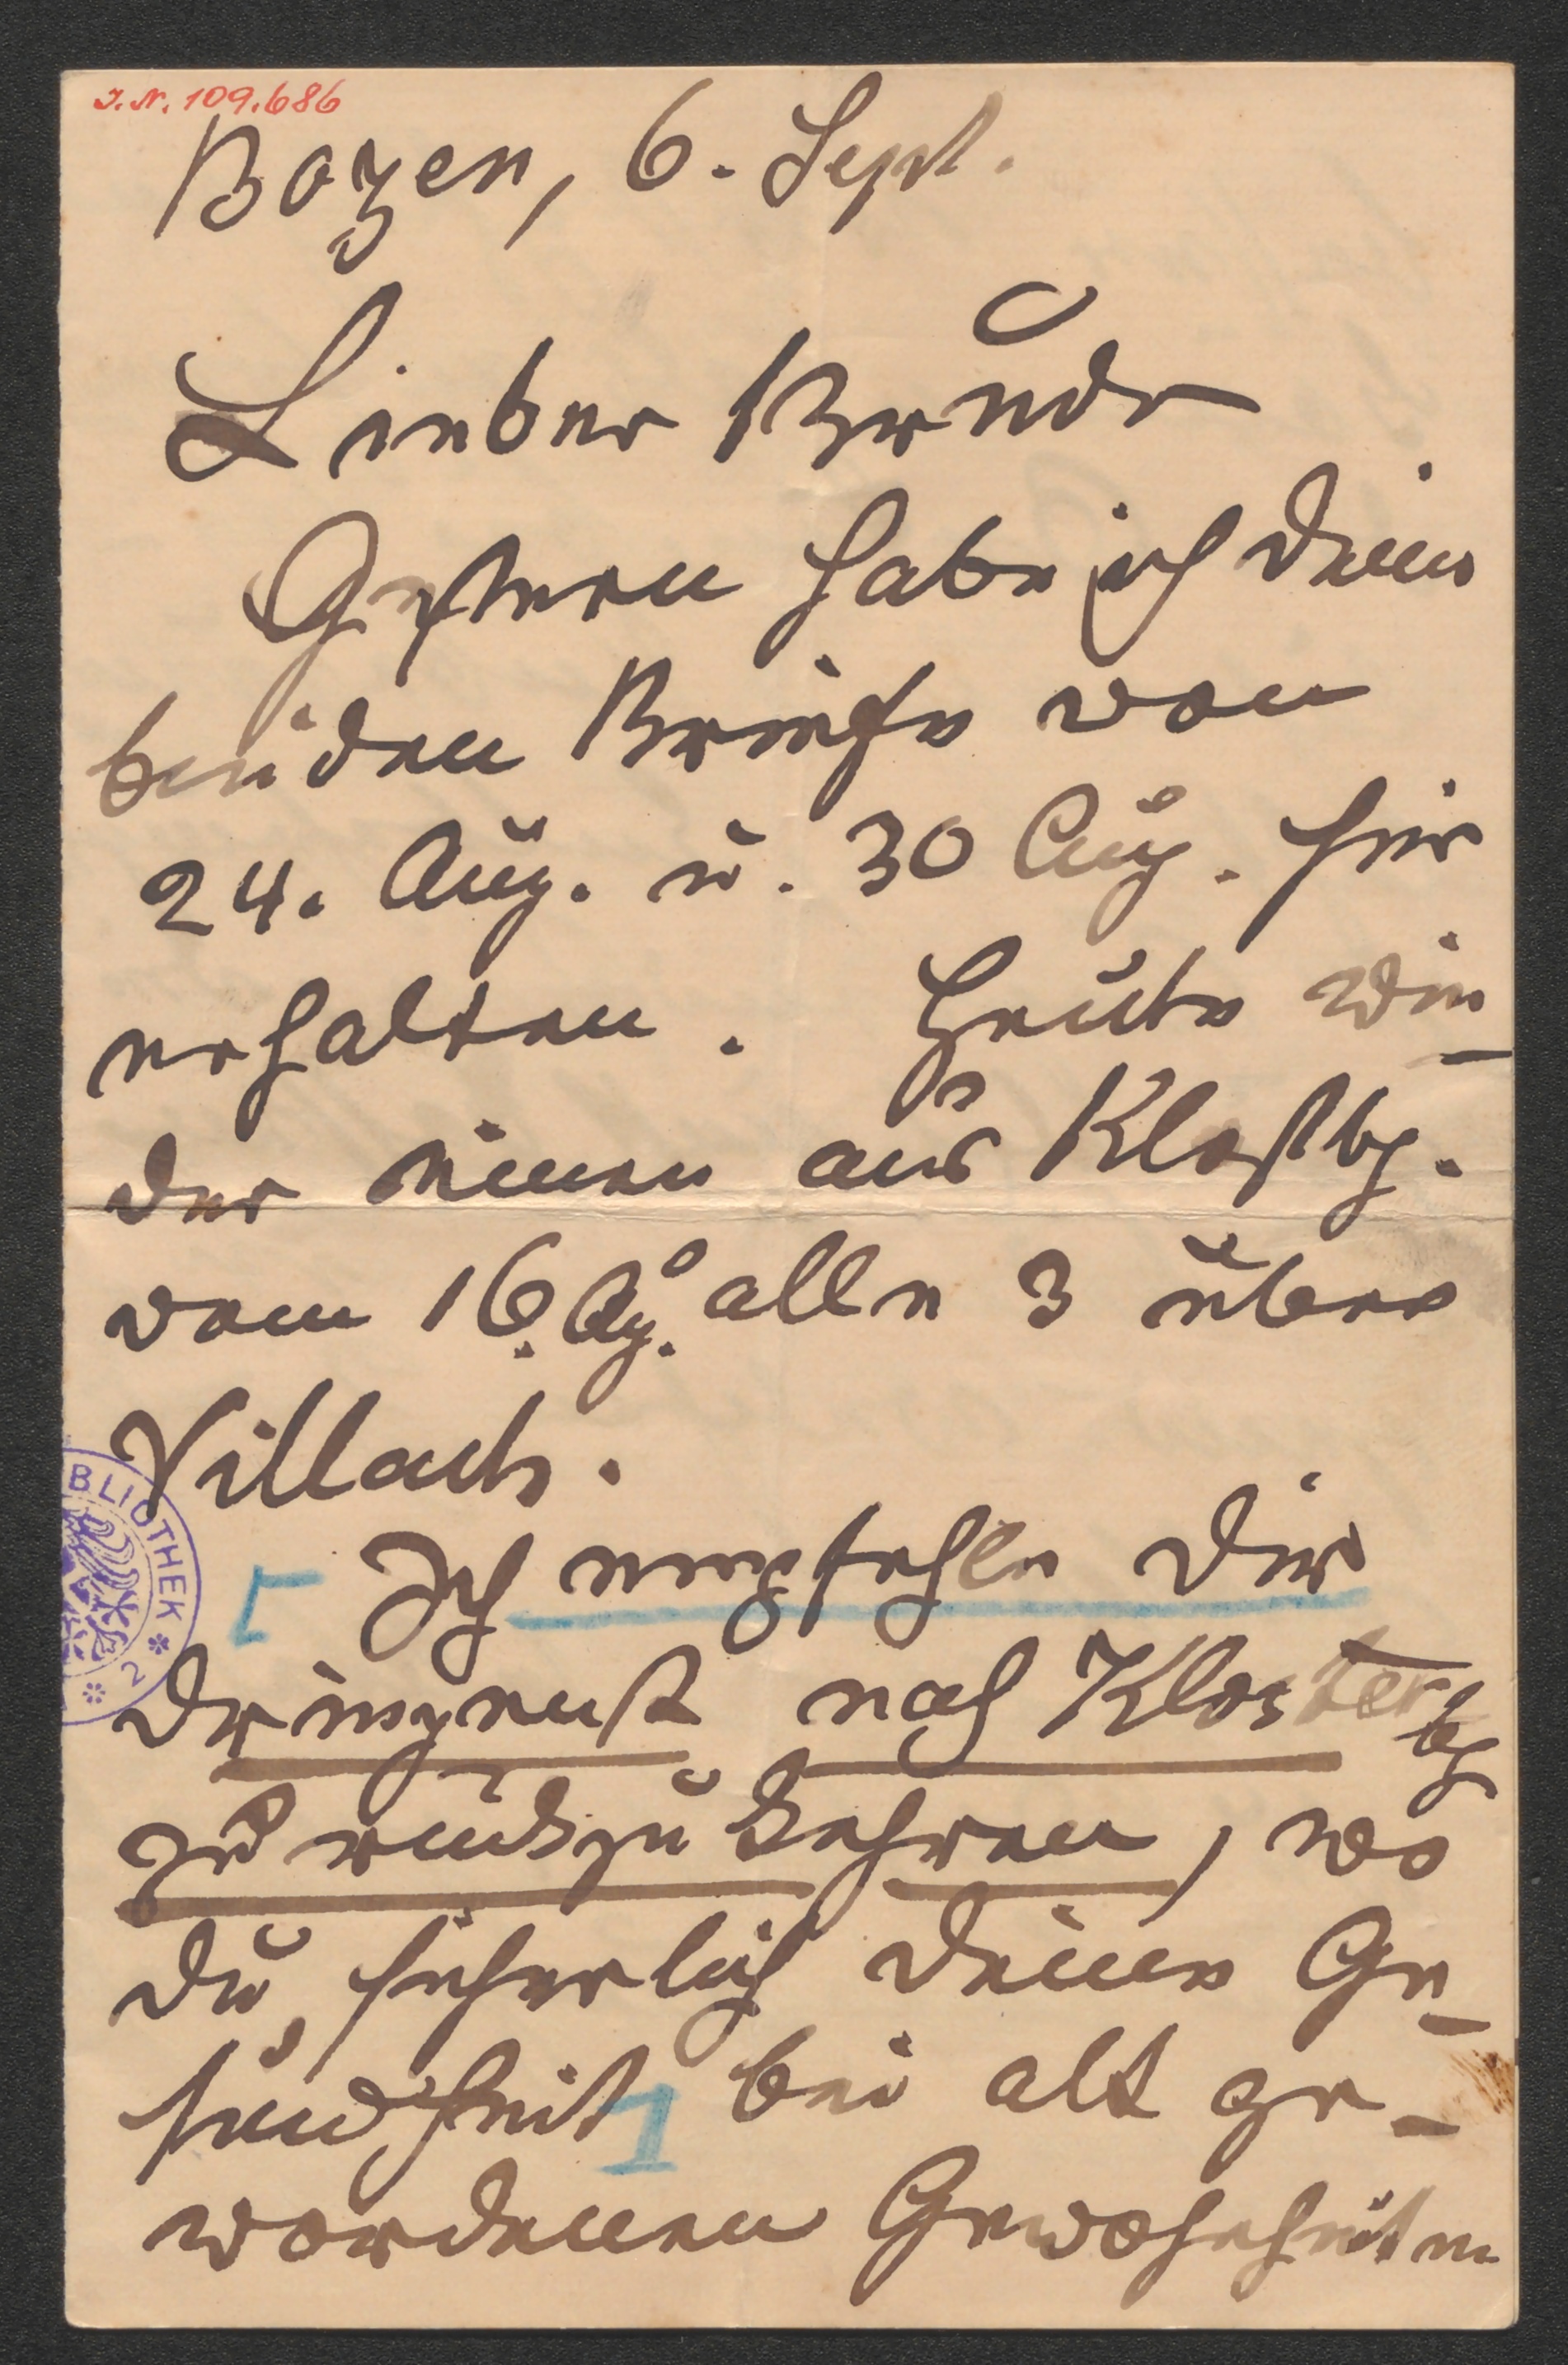 I.N. 109.686
Bozen, 6. Sept.
Lieber Bruder
Gestern habe ich deine
beiden Briefe von
24. Aug. u. 30 Aug. hier
erhalten. Heute wie-
der einen aus Klostbg.
vom 16. Ag. alle 3 über
Villach.
Ich empfehle dir
dringenst nach Klosterbg
zurückzukehren, wo
du sicherlich deine Ge-
sundheit bei alt ge-
wordenen Gewohnheiten
BLIOTHEK